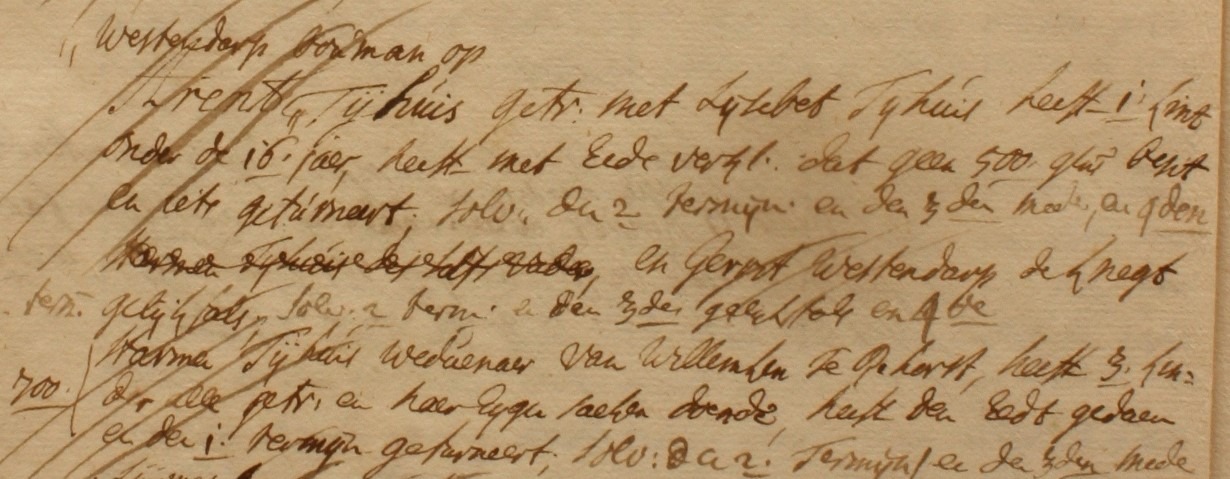 Westendarp bouman op
Arent Tijhuis getr. met Lijsebet Tijhuis heeft 1 kint
onder de 16. jaer, heeft met Eede verkl. dat geen 500 gln besit
en iets geturneert, solv. den 2 termijn en den 3den mede, en 4den
Harmen Tijhuis des selfs vader, en Gerrit Westendarp de knegt
term. gelijkfals, solv. 2 term. en den 3den gelijkfals en 4de
Harmen Tijhuis Weduenaer van Willemken te Rehorst, heeft 3. kin=
700. der alle getr. en haer Eygen saeken doende, heeft den Eedt gedaen
en den 1. termijn geturneert, solv: den 2. Termijn en den 3den mede